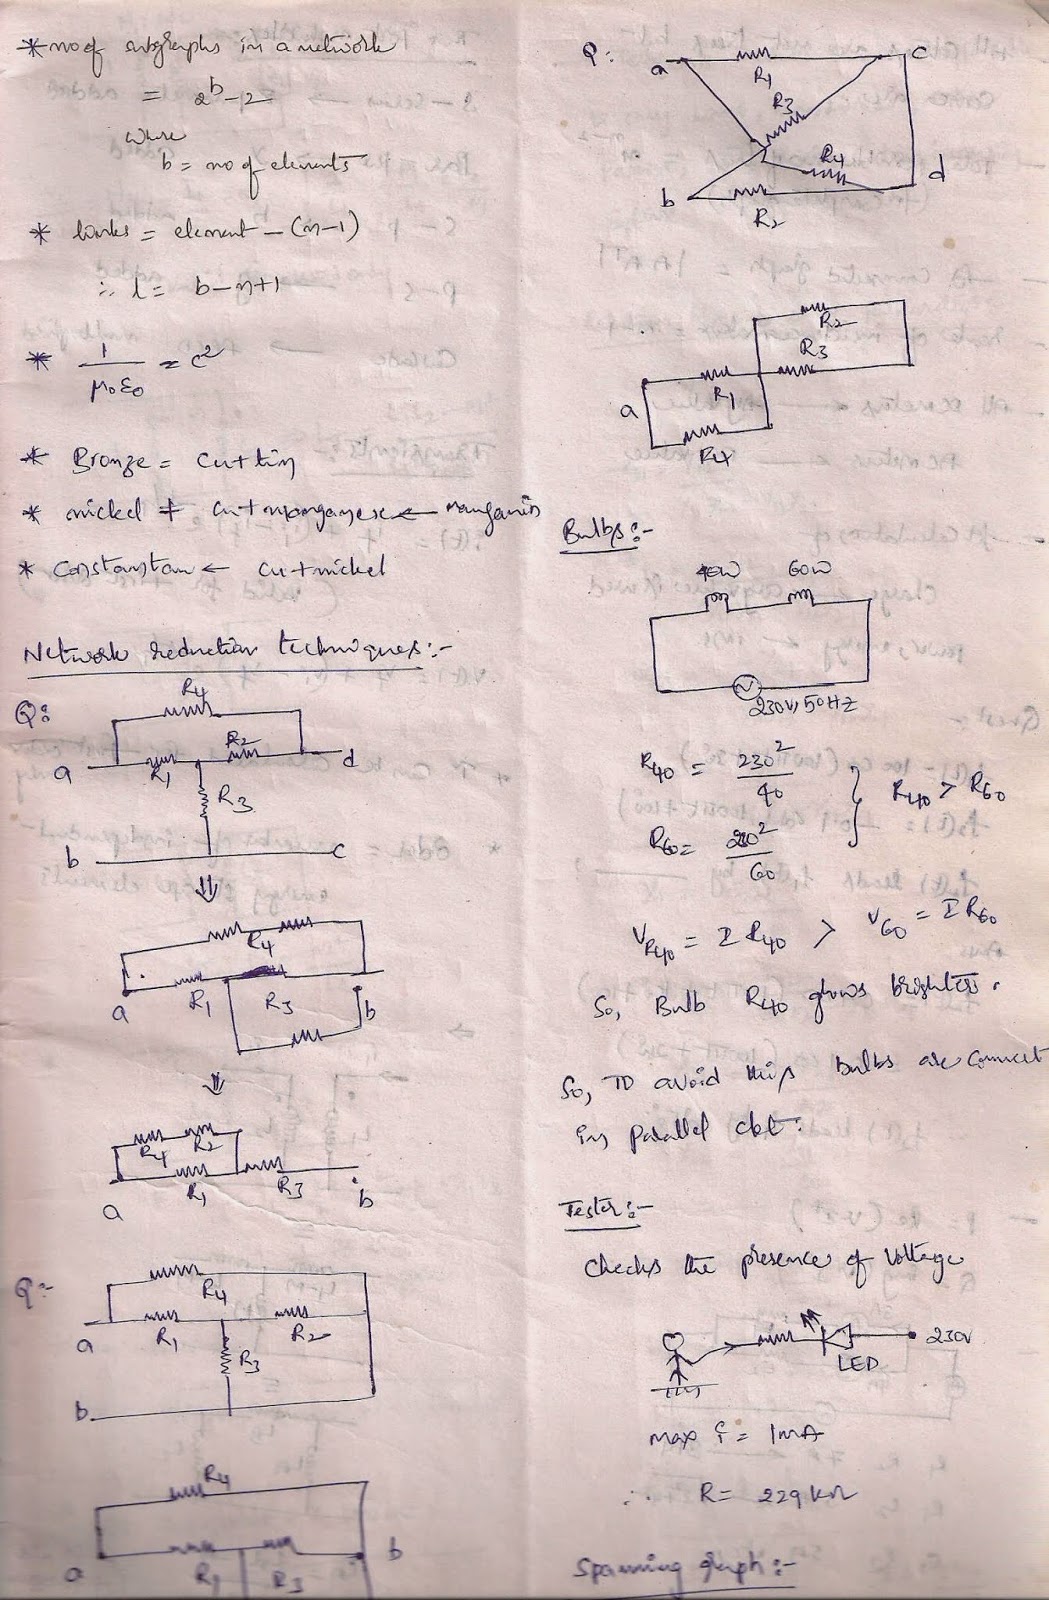 * no of subgraphs in a network
= 2^b - 2
where
b = no of elements
* links = element - (n-1)
∴ l = b-n+1
* 1/μ0ε0 = c²
* Bronze = Cu + tin
* nickel + Cu + manganese ← Manganin
* Constantan ← Cu + nickel
Network reduction techniques:-
Q:
R4
a R1 R2 d
R3
b c
⇓
R4
a R1 R3 b
⇓
R4 R2
a R1 R3 b
Q:-
R4
a R1 R2
R3
b
R4
a R1 R3 b
Q:
a R1 c
R3
R4
b R2 d
R2
R3
a R1
R4
Bulbs:-
40W 60W
230V, 50HZ
R40 = 230²/40
R60 = 230²/60
R40 > R60
VR40 = I R40 > V60 = I R60
So, Bulb R40 glows brighter.
So, TO avoid this Bulbs are connect
in parallel ckt.
Tester:-
Checks the presence of voltage
LED 230V
max i = 1mA
∴ R = 229 kΩ
Spanning graph:-